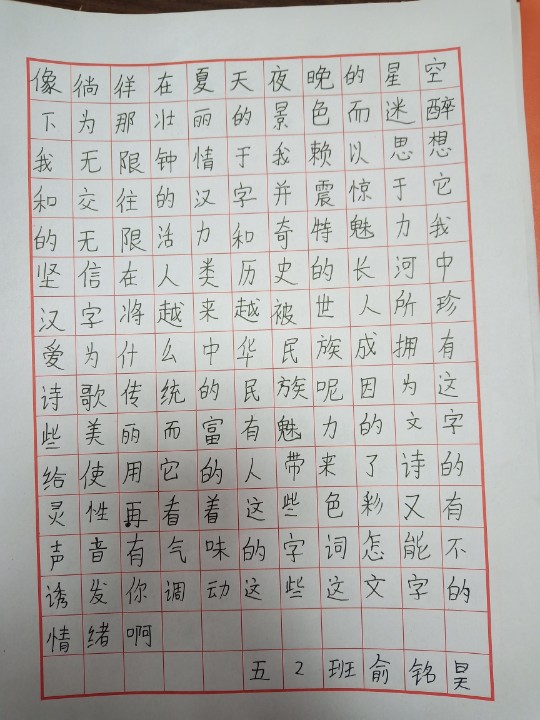 像徜徉在夏天夜晚的星空
下为那壮丽的景色而迷醉
我无限钟情于我赖以思想
和交往的汉字并震惊于它
的无限活力和奇特魅力我
坚信在人类历史的长河中
汉字将越来越被世人所珍
爱为什么中华民族成拥有
诗歌传统的民族呢因为这
些美丽而富有魅力的文字
给使用它的人带来了诗的
灵性再看着这些色彩又有
声音有气味的字词怎能不
诱发你调动这些这文字的
情绪啊
五2班俞铭昊